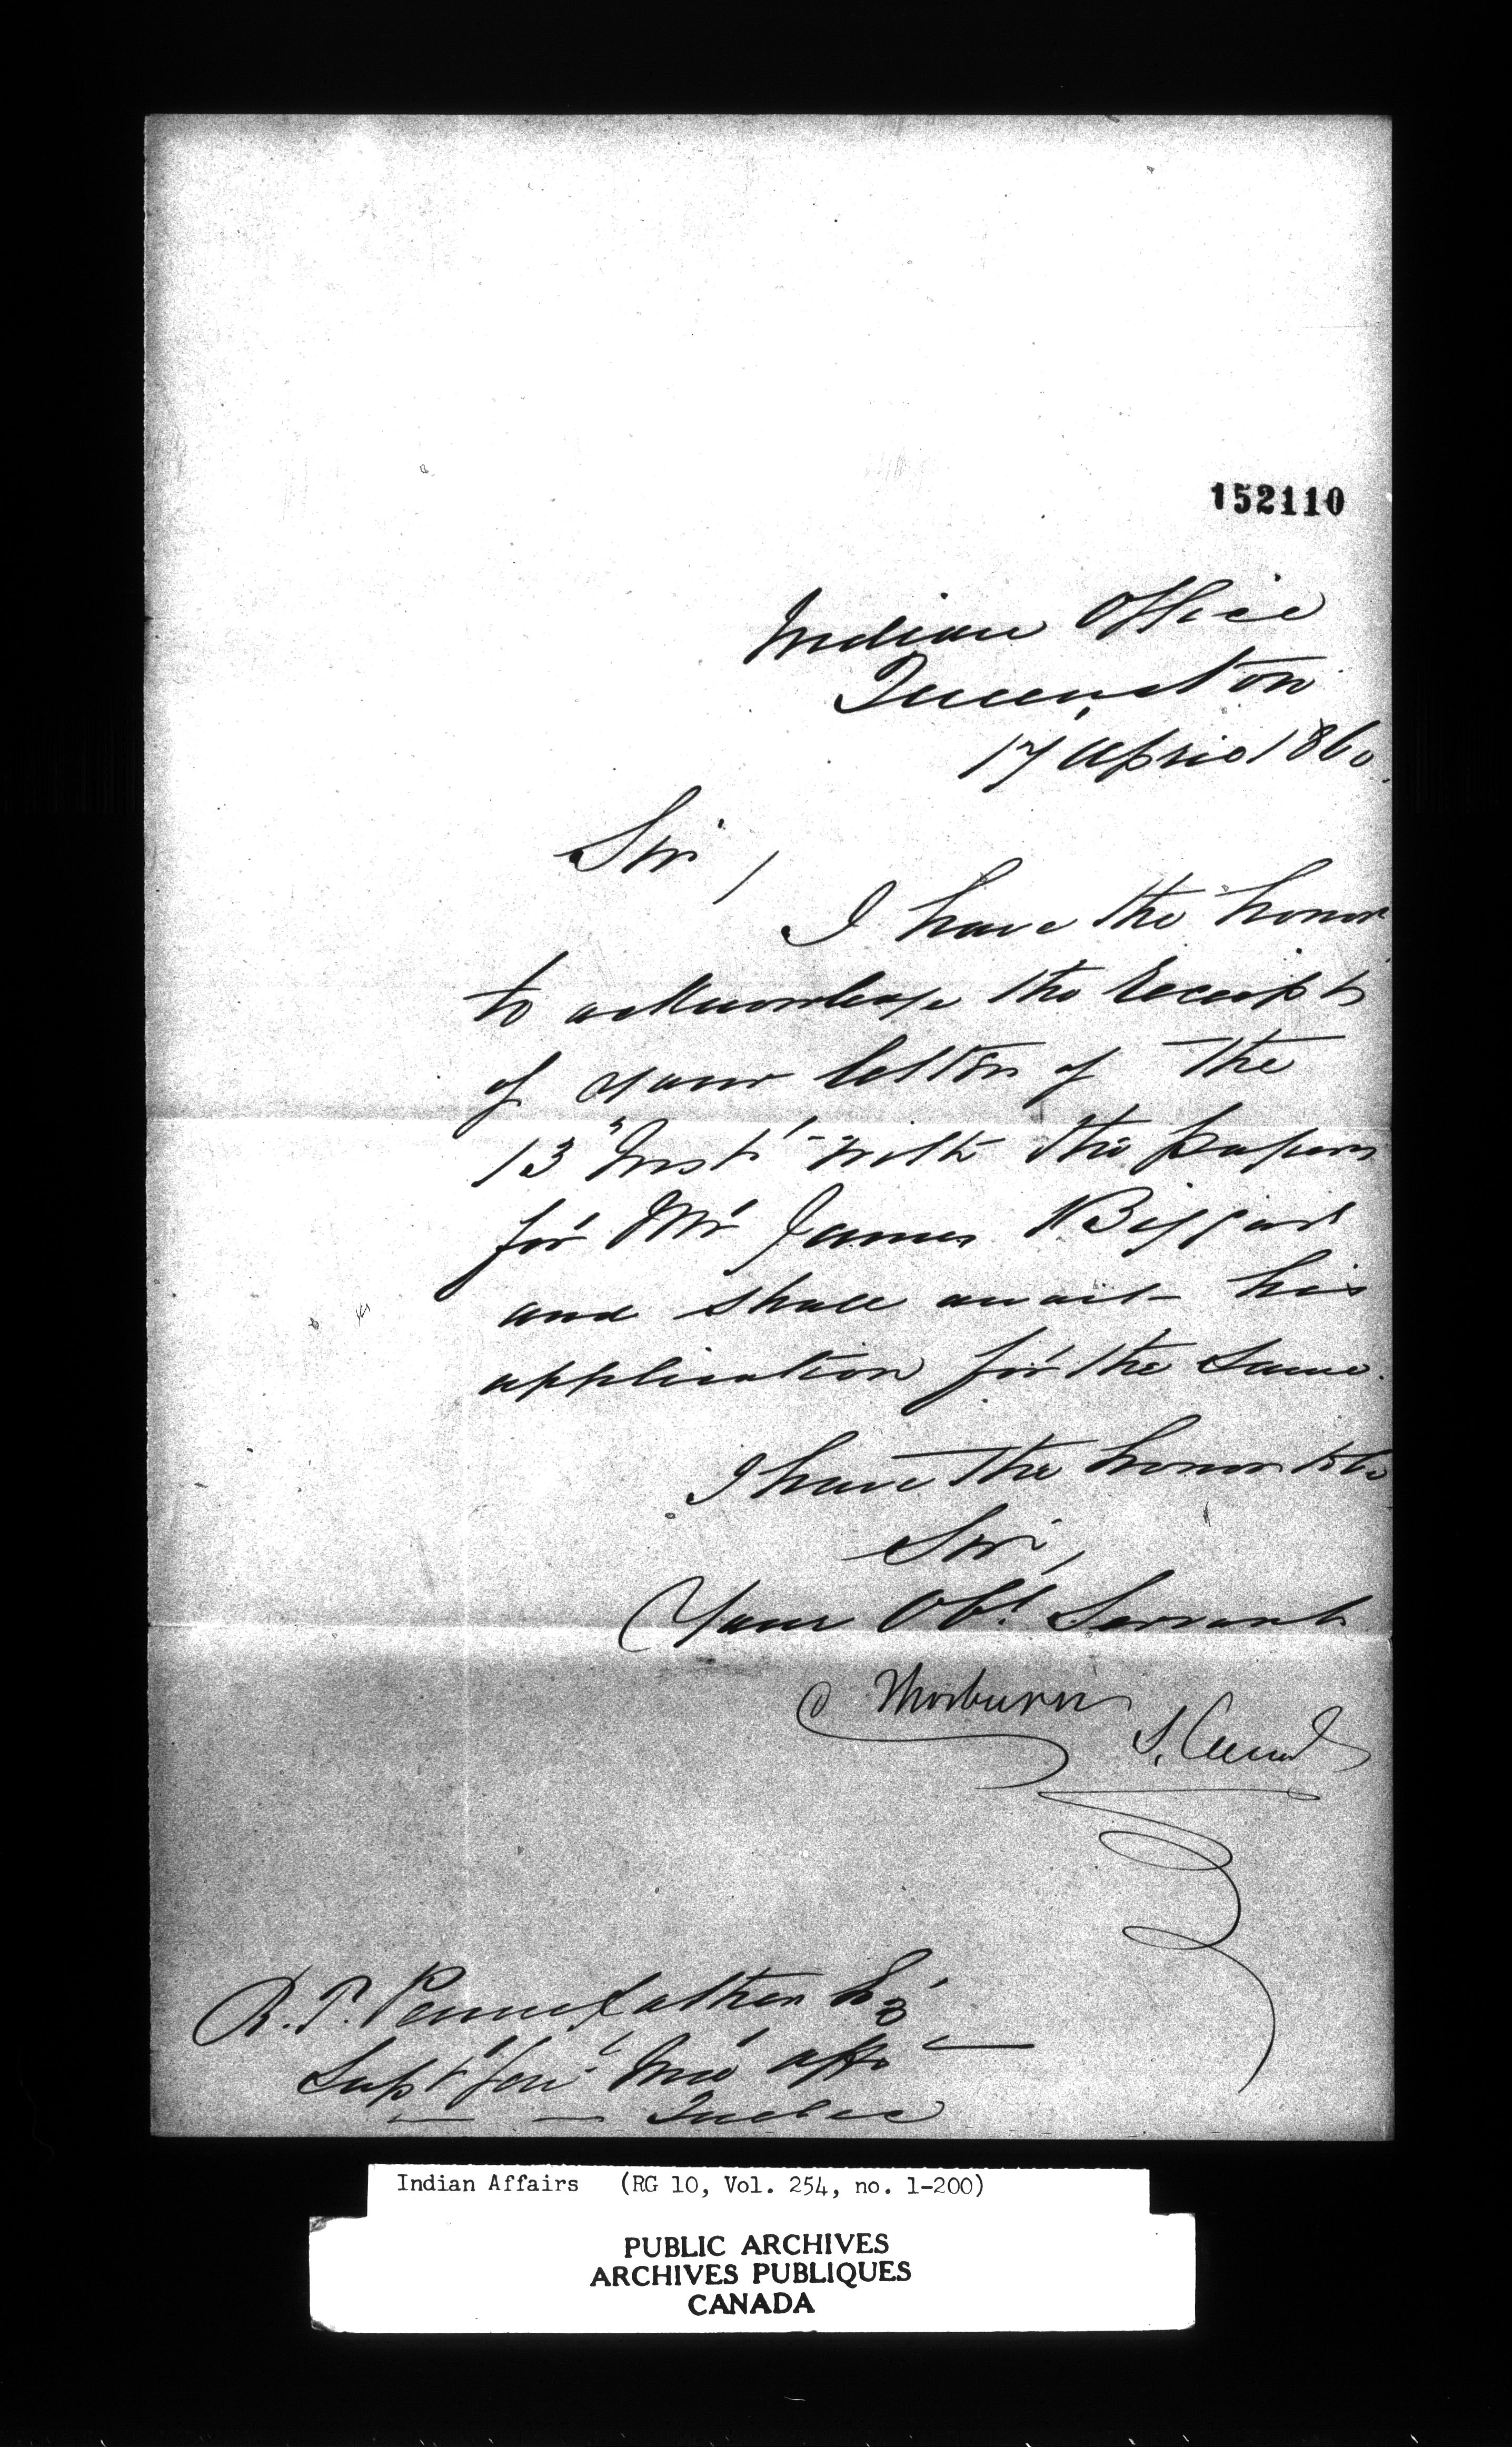 152110
Indian Office
Queenston
17 April 1860.
Sir,
I have the honor
to acknowledge the Receipt
of your letter of the
13" Inst with the papers
for Mr James Biggar
and shall await his
application for the same.
I have the honor to be
Sir,
Your Obt. Servant
D Thorburn
R. T. Pennefather Esq
Supt Genl Ind Affs
Quebec
Indian Affairs (RG 10, Vol. 254, no. 1-200)
PUBLIC ARCHIVES
ARCHIVES PUBLIQUES
CANADA